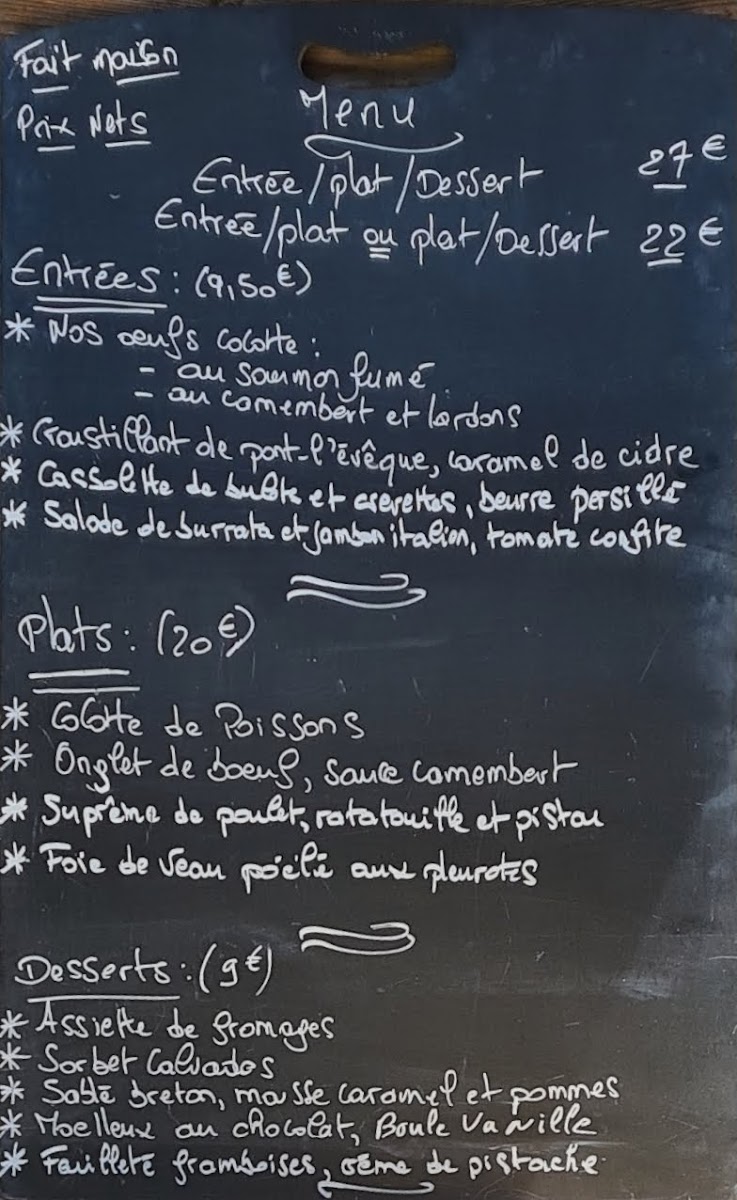 Fait maison
Prix Nets
Menu
Entrée/plat/Dessert 27€
Entrée/plat ou plat/Dessert 22€
Entrées : (9,50€)
* Nos œufs cocotte :
- au saumon fumé
- au camembert et lardons
* Croustillant de pont-l'évêque, caramel de cidre
* Cassolette de bulots et crevettes, beurre persillé
* Salade de burrata et jambon italien, tomate confite
Plats : (20€)
* Cocotte de Poissons
* Onglet de boeuf, sauce camembert
* Suprême de poulet, ratatouille et pistou
* Foie de veau poêlé aux pleurotes
Desserts : (9€)
* Assiette de fromages
* Sorbet Calvados
* Sablé breton, mousse caramel et pommes
* Moelleux au chocolat, Boule Vanille
* Feuilleté framboises, crème de pistache